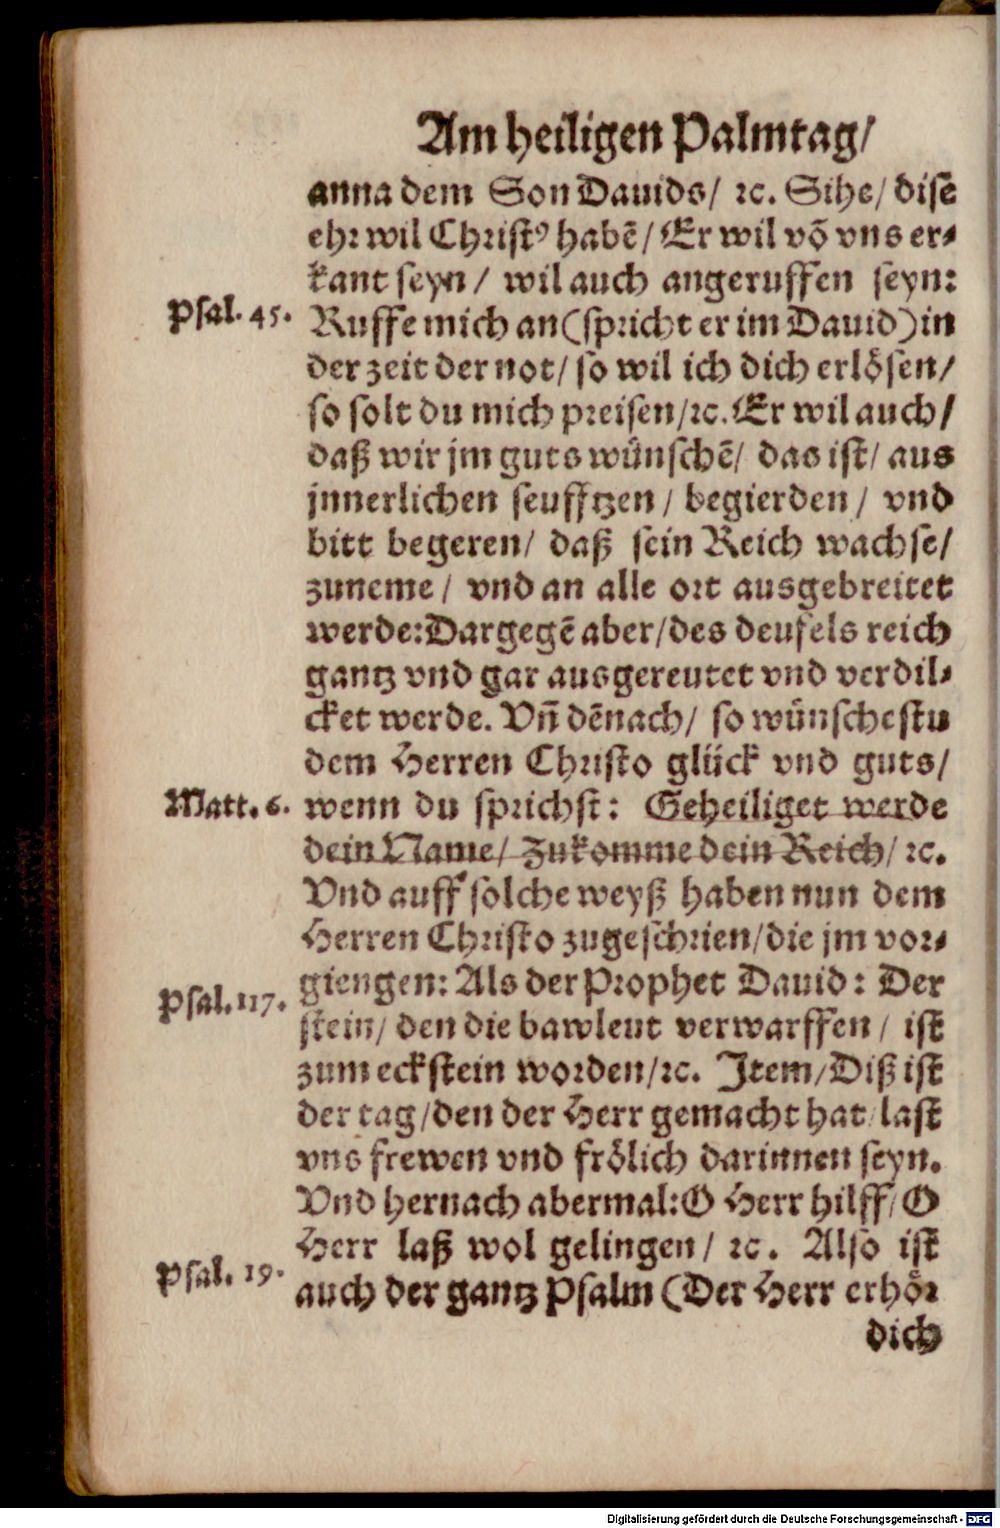 Am heiligen Palmtag/
anna dem Son Dauids/ ꝛc. Sihe/ dise
ehꝛ wil Chꝛistꝰ habẽ/ Er wil võ vns er⸗
kant seyn/ wil auch angeruffen seyn:
Psal. 45.
Ruffe mich an (spꝛicht er im Dauid) in
der zeit der not/ so wil ich dich erlösen/
so solt du mich pꝛeisen/ꝛc. Er wil auch/
daß wir jm guts wünschẽ/ das ist/ aus
jnnerlichen seufftzen/ begierden/ vnd
bitt begeren/ daß sein Reich wachse/
zuneme/ vnd an alle oꝛt ausgebreitet
werde: Dargegẽ aber/ des deufels reich
gantz vnd gar ausgereutet vnd verdil⸗
cket werde. Vñ dẽnach/ so wünschestu
dem Herren Chꝛisto glück vnd guts/
Matt. 6.
wenn du spꝛichst: Geheiliget werde
dein Name/ Zukomme dein Reich/ ꝛc.
Vnd auff solche weyß haben nun dem
Herren Chꝛisto zugeschꝛien/ die jm voꝛ⸗
giengen: Als der Pꝛophet Dauid: Der
Psal. 117.
stein/ den die bawleut verwarffen/ ist
zum eckstein woꝛden/ꝛc. Item/ Diß ist
der tag/ den der Herr gemacht hat/ last
vns frewen vnd frölich darinnen seyn.
Vnd hernach abermal: O Herr hilff/ O
Herr laß wol gelingen/ ꝛc. Also ist
Psal. 19.
auch der gantz Psalm (Der Herr erhöꝛ
dich
Digitalisierung gefördert durch die Deutsche Forschungsgemeinschaft - DFG